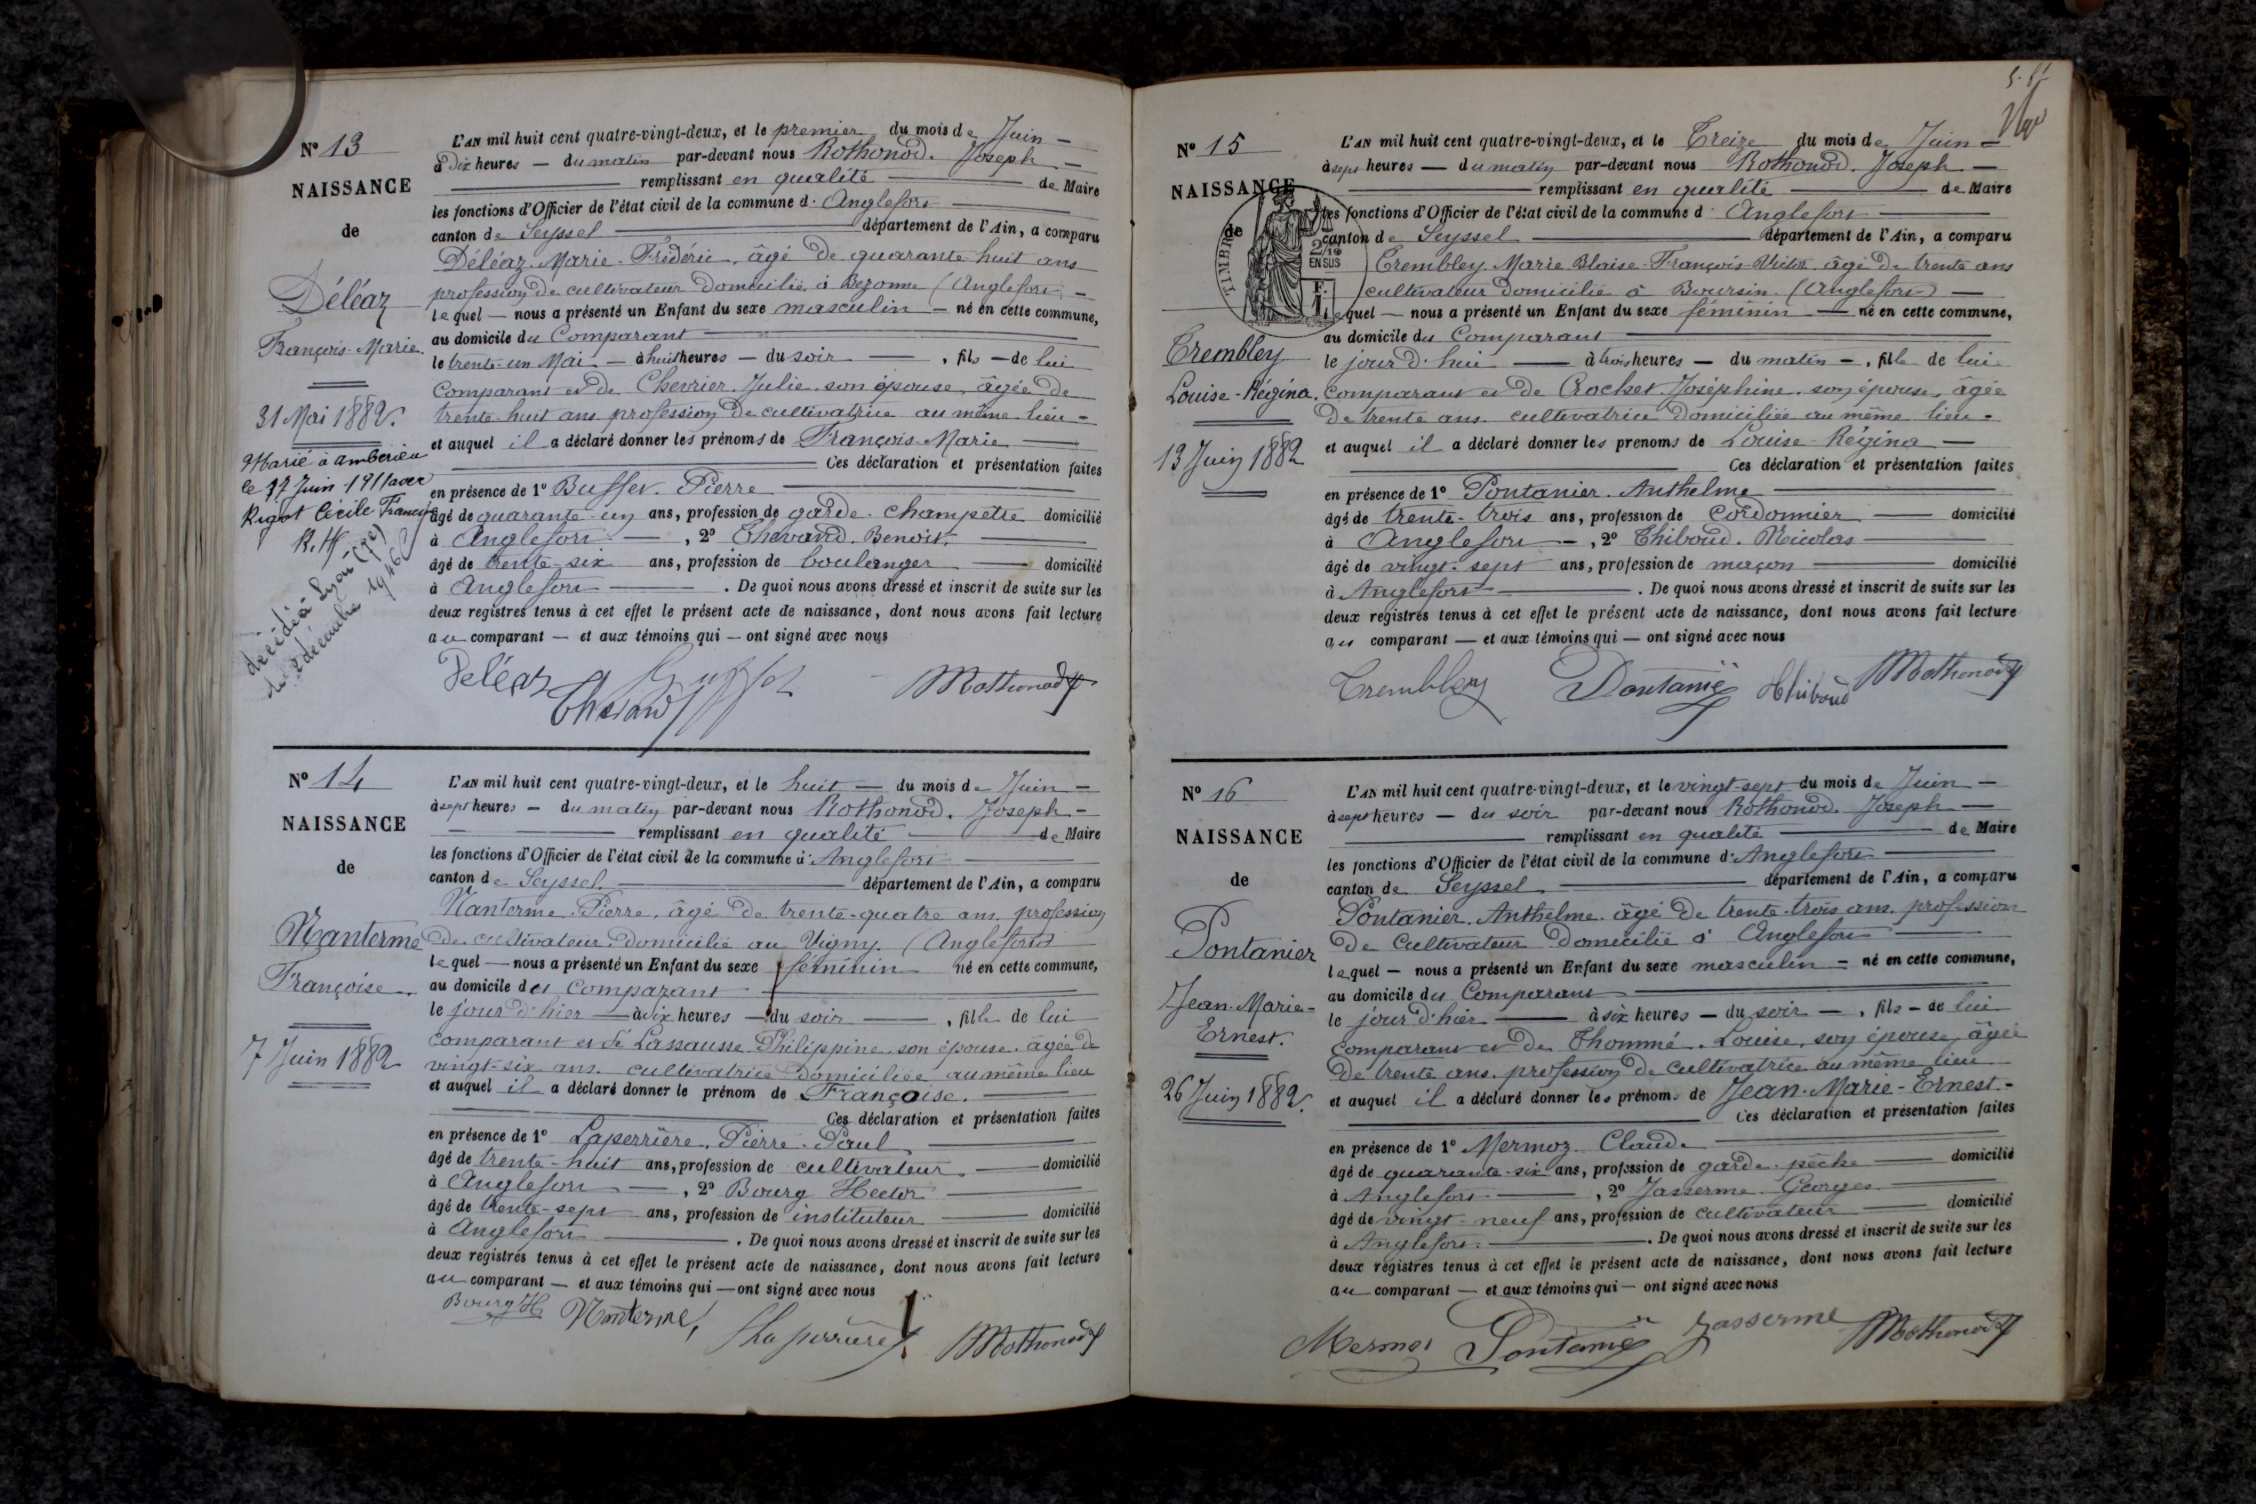 Nº 13
NAISSANCE
de
Déléaz
François-Marie.
31 Mai 1882.
Marié à Ambérieu
le 17 Juin 1911 avec
Rigot Cécile Françoise
décédé à Lyon
décembre 1946
L'AN mil huit cent quatre-vingt-deux, et le premier du mois de Juin —
à dix heures — du matin par-devant nous Rothonod. Joseph —
remplissant en qualité de Maire
les fonctions d'Officier de l'état civil de la commune d' Anglefort
canton de Seyssel département de l'Ain, a comparu
Déléaz. Marie-Frédéric. âgé de quarante huit ans
profession de cultivateur domicilié à Bezonne (Anglefort) —
lequel — nous a présenté un Enfant du sexe masculin — né en cette commune,
au domicile du Comparant
le trente-un Mai — à huit heures — du soir — , fils — de lui
Comparant et de Chevrier. Julie. son épouse, âgée de
trente-huit ans profession de cultivatrice au même lieu —
et auquel il a déclaré donner les prénoms de François-Marie
Ces déclaration et présentation faites
en présence de 1º Buffet. Pierre
âgé de quarante-un ans, profession de garde-champetre domicilié
à Anglefort — , 2º Thevand. Benoit.
âgé de trente-six ans, profession de boulanger domicilié
à Anglefort . De quoi nous avons dressé et inscrit de suite sur les
deux registres tenus à cet effet le présent acte de naissance, dont nous avons fait lecture
au comparant — et aux témoins qui — ont signé avec nous
Déléaz Buffet Rothonod
Thevand
Nº 14
NAISSANCE
de
Nanterme
Françoise.
7 Juin 1882
L'AN mil huit cent quatre-vingt-deux, et le huit — du mois de Juin —
à sept heures — du matin par-devant nous Rothonod. Joseph —
remplissant en qualité de Maire
les fonctions d'Officier de l'état civil de la commune d' Anglefort
canton de Seyssel. département de l'Ain, a comparu
Nanterme. Pierre. âgé de trente-quatre ans. profession
de cultivateur. domicilié au Vigny. (Anglefort)
lequel — nous a présenté un Enfant du sexe féminin né en cette commune,
au domicile du comparant
le jour d'hier — à dix heures — du soir — , fille de lui
comparant et de Lassausse. Philippine. son épouse. âgée de
vingt-six ans. cultivatrice domiciliée au même lieu
et auquel il a déclaré donner le prénom de Françoise.
Ces déclaration et présentation faites
en présence de 1º Laperrière. Pierre-Paul
âgé de trente-huit ans, profession de cultivateur domicilié
à Anglefort — , 2º Bourg Hector
âgé de trente-sept ans, profession de instituteur domicilié
à Anglefort . De quoi nous avons dressé et inscrit de suite sur les
deux registres tenus à cet effet le présent acte de naissance, dont nous avons fait lecture
au comparant — et aux témoins qui — ont signé avec nous
Bourg H Nanterme Laperrière Rothonod
Nº 15
NAISSANCE
de
TIMBRE
2/10
EN SUS
Trembley
Louise-Régina.
13 Juin 1882
L'AN mil huit cent quatre-vingt-deux, et le Treize du mois de Juin —
à sept heures — du matin par-devant nous Rothonod. Joseph —
remplissant en qualité de Maire
les fonctions d'Officier de l'état civil de la commune d' Anglefort
canton de Seyssel département de l'Ain, a comparu
Trembley. Marie Blaise-François-Victor âgé de trente ans
cultivateur domicilié à Boursin. (Anglefort) —
lequel — nous a présenté un Enfant du sexe féminin — né en cette commune,
au domicile du Comparant
le jour d'hui — à trois heures — du matin — , fille de lui
comparant et de Crochet. Joséphine. son épouse, âgée
de trente ans. cultivatrice domiciliée au même lieu —
et auquel il a déclaré donner les prenoms de Louise-Régina —
Ces déclaration et présentation faites
en présence de 1º Pontanier. Anthelme
âgé de trente-trois ans, profession de Cordonnier domicilié
à Anglefort — , 2º Thiboud. Nicolas
âgé de vingt-sept ans, profession de maçon domicilié
à Anglefort . De quoi nous avons dressé et inscrit de suite sur les
deux registres tenus à cet effet le présent acte de naissance, dont nous avons fait lecture
au comparant — et aux témoins qui — ont signé avec nous
Trembley Pontanier Thiboud Rothonod
Nº 16
NAISSANCE
de
Pontanier
Jean-Marie-
Ernest.
26 Juin 1882.
L'AN mil huit cent quatre-vingt-deux, et le vingt-sept du mois de Juin —
à sept heures — du soir par-devant nous Rothonod. Joseph —
remplissant en qualité de Maire
les fonctions d'Officier de l'état civil de la commune d' Anglefort
canton de Seyssel département de l'Ain, a comparu
Pontanier. Anthelme. âgé de trente-trois ans. profession
de Cultivateur domicilié à Anglefort
lequel — nous a présenté un Enfant du sexe masculin — né en cette commune,
au domicile du Comparant
le jour d'hier — à six heures — du soir — , fils — de lui
comparant et de Thommé. Louise, son épouse, âgée
de trente ans. profession de cultivatrice au même lieu
et auquel il a déclaré donner les prénoms de Jean-Marie-Ernest.-
Ces déclaration et présentation faites
en présence de 1º Mermoz Claude
âgé de quarante-six ans, profession de garde-pêche domicilié
à Anglefort , 2º Jasserme Georges
âgé de vingt-neuf ans, profession de cultivateur domicilié
à Anglefort . De quoi nous avons dressé et inscrit de suite sur les
deux registres tenus à cet effet le présent acte de naissance, dont nous avons fait lecture
au comparant — et aux témoins qui — ont signé avec nous
Mermoz Pontanier Jasserme Rothonod